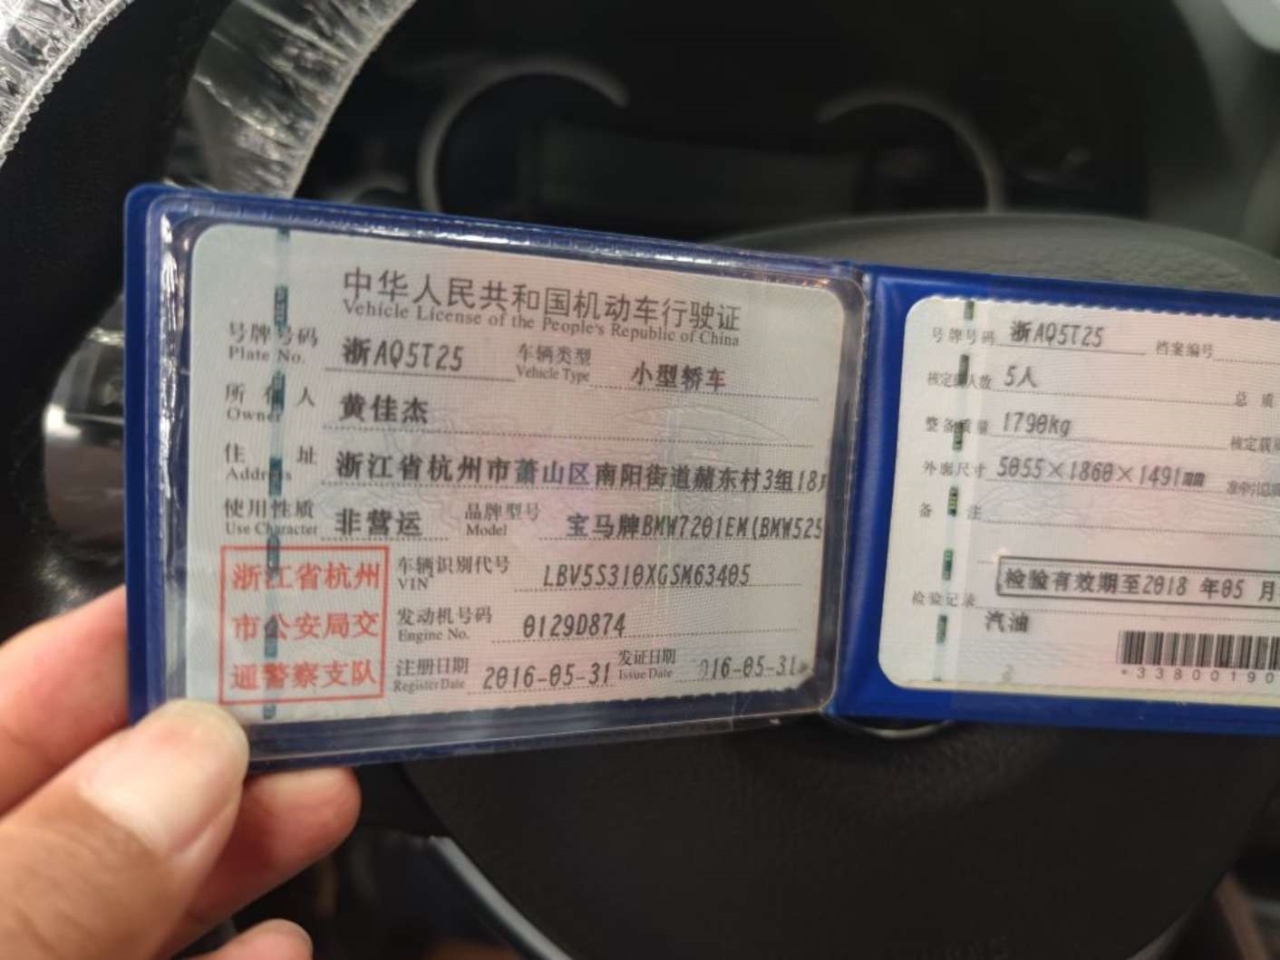 中华人民共和国机动车行驶证
Vehicle License of the People's Republic of China
号牌号码 浙AQ5T25 车辆类型 小型轿车
Plate No. Vehicle Type
所有人 黄佳杰
Owner
住址 浙江省杭州市萧山区南阳街道赭东村3组18
Address
使用性质 非营运 品牌型号 宝马牌BMW7201EM(BMW525
Use Character Model
浙江省杭州
市公安局交
通警察支队
车辆识别代号 LBV5S310XGSM63405
VIN
发动机号码 0129D874
Engine No.
注册日期 2016-05-31 发证日期 16-05-31
Register Date Issue Date
号牌号码 浙AQ5T25 档案编号
核定载人数 5人 总质
整备质量 1790kg 核定载
外廓尺寸 5055×1860×1491mm
备注
检验有效期至2018 年05 月
检验记录
汽油
*33800190